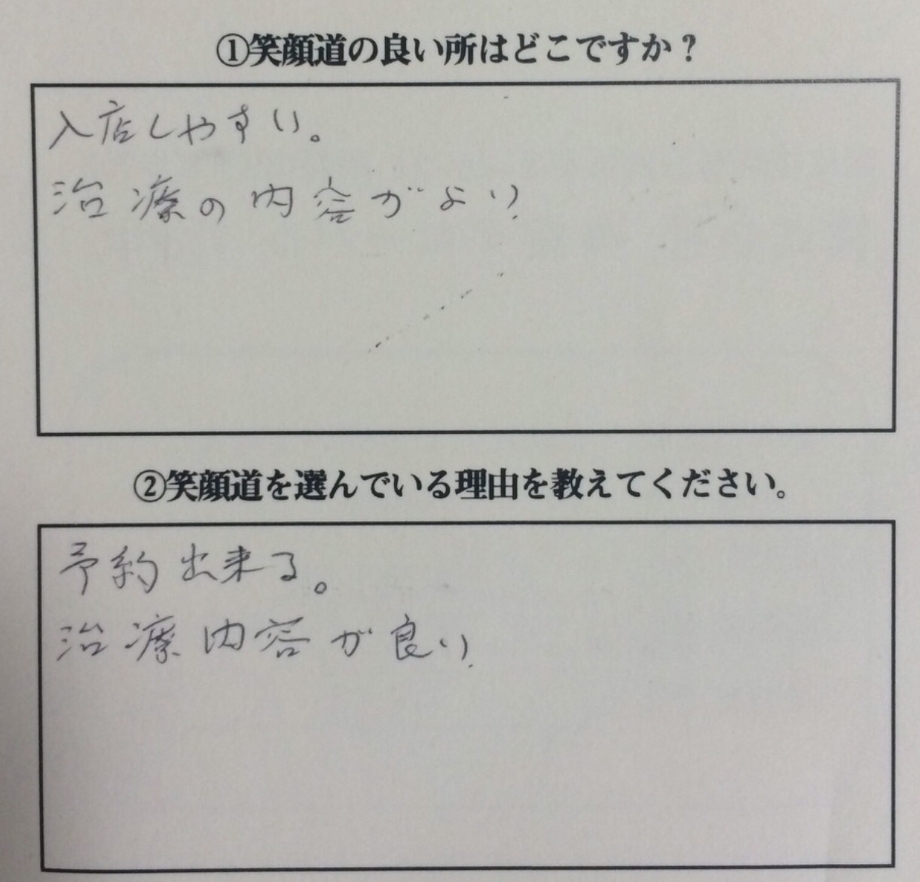 ①笑顔道の良い所はどこですか？
入店しやすい。
治療の内容がよい.
②笑顔道を選んでいる理由を教えてください。
予約出来る。
治療内容が良い.